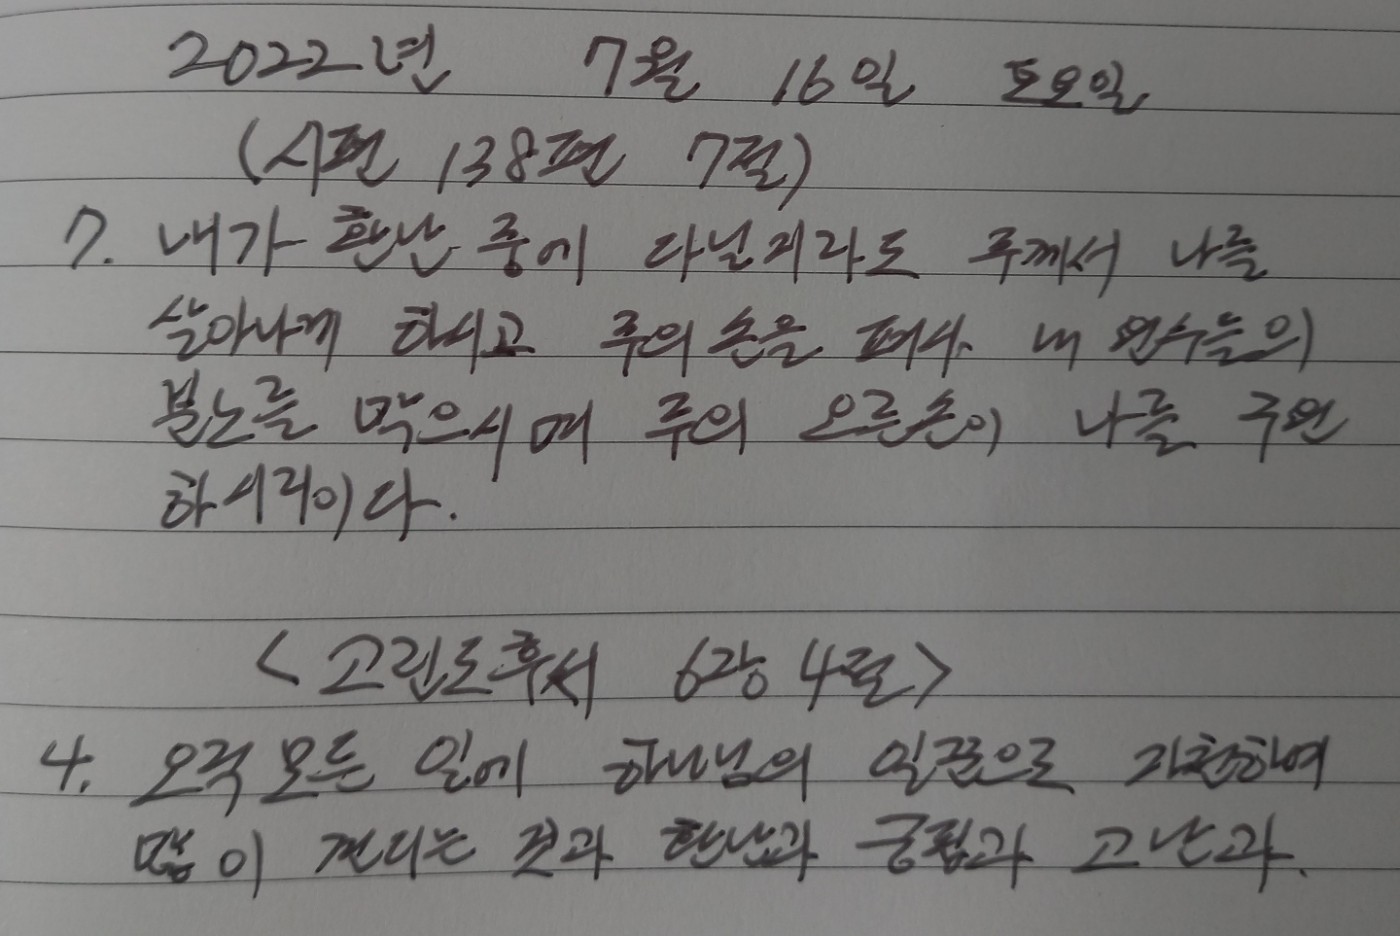 2022년 7월 16일 토요일
(시편 138편 7절)
7. 내가 환난 중에 다닐지라도 주께서 나를
살아나게 하시고 주의 손을 펴사 내 원수들의
분노를 막으시며 주의 오른손이 나를 구원
하시리이다.
<고린도후서 6장 4절>
4. 오직 모든 일에 하나님의 일꾼으로 자천하여
많이 견디는 것과 환난과 궁핍과 고난과.